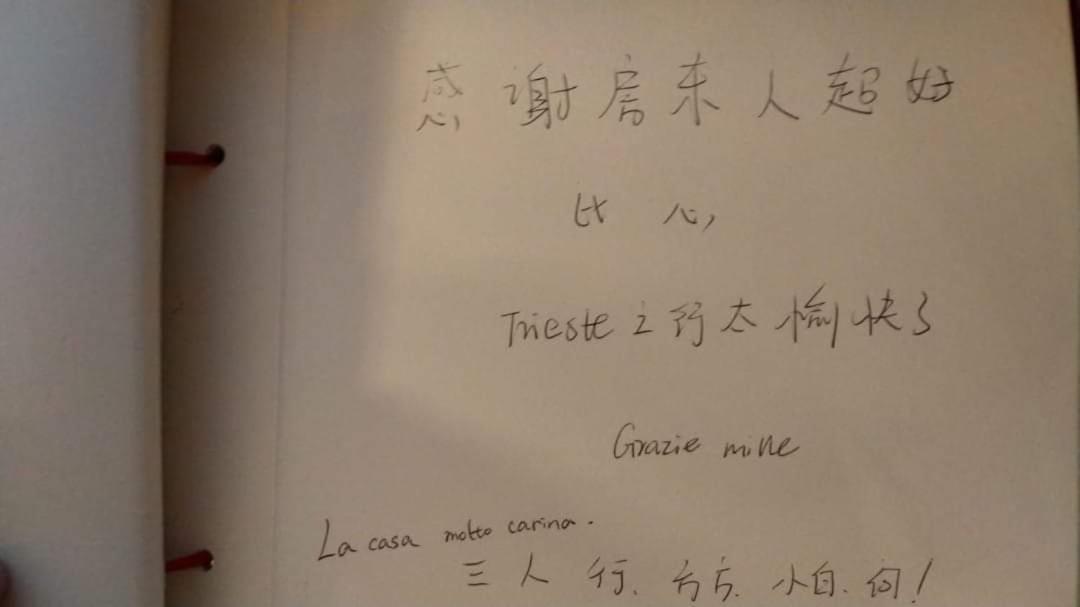 感谢房东人超好
比心
Trieste之行太愉快了
Grazie mille
La casa molto carina.
三人行、方方、小白、向!